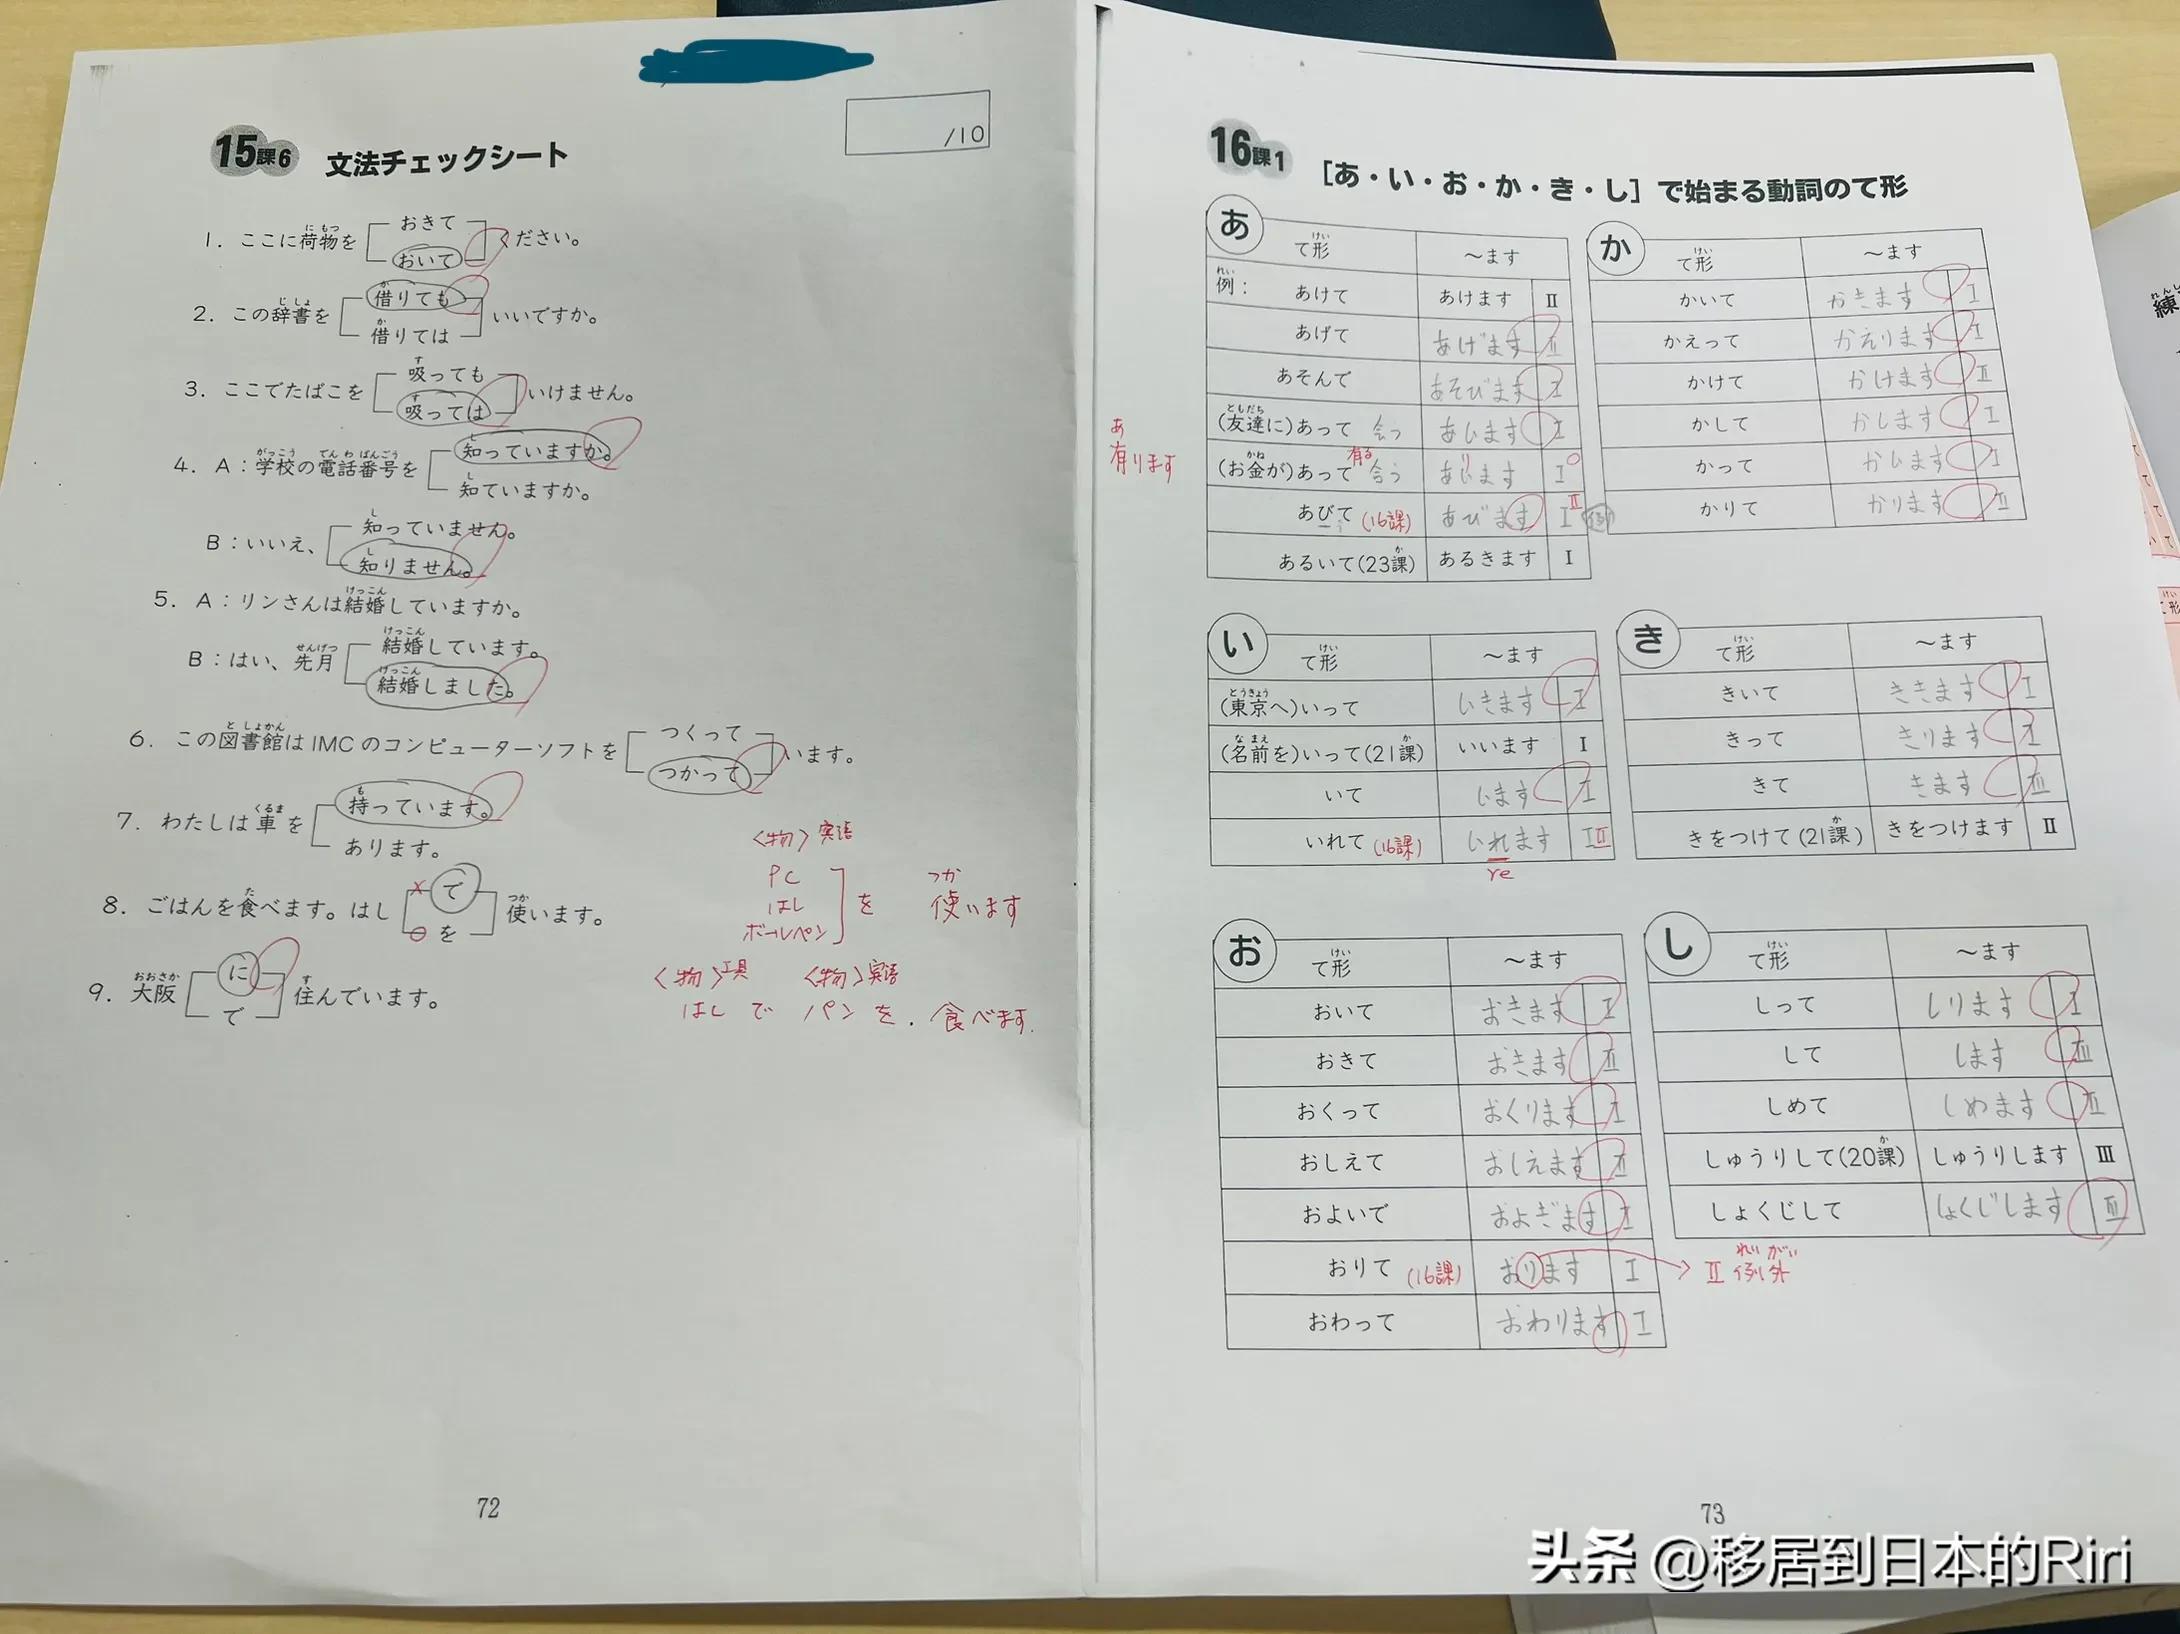 15課6 文法チェックシート
/10
1. ここに荷物を おきて くださ​い。
おいて
2. この辞書を 借りても いいですか。
借りては
3. ここでたばこを 吸っても いけません。
吸っては
4. A：学校の電話番号を 知っていますか。
知ていますか。
B：いいえ、 知っていません。
知りません。
5. A：リンさんは結婚していますか。
B：はい、先月 結婚しています。
結婚しました。
6. この図書館はIMCのコンピューターソフトを つくって います。
つかって
7. わたしは車を 持っています。
あります。
8. ごはんを食べます。はし で 使います。
を
9. 大阪 に 住んでいます。
で
〈物〉宾语
PC
はし を 使います
つか
ボールペン
〈物〉工具 〈物〉宾语
はし で パン を. 食べます.
72
16課1 [あ・い・お・か・き・し]で始まる動詞のて形
あ
て形 〜ます
例： あけて あけます II
あげて あげます II
あそんで あそびます I
(友達に)あって 会う あいます I
(お金が)あって 有る 合う あります I
あ
有ります
あびて (16課) あびます I II
あるいて(23課) あるきます I
か
て形 〜ます
かいて かきます I
かえって かえります I
かけて かけます II
かして かします I
かって かいます I
かりて かります II
い
て形 〜ます
(東京へ)いって いきます I
(名前を)いって(21課) いいます I
いて います I
いれて (16課) いれます I II
re
き
て形 〜ます
きいて ききます I
きって きります I
きて きます III
きをつけて(21課) きをつけます II
お
て形 〜ます
おいて おきます I
おきて おきます II
おくって おくります I
おしえて おしえます II
およいで およぎます I
おりて (16課) おります I → II 例外
れいがい
おわって おわります I
し
て形 〜ます
しって しります I
して します III
しめて しめます II
しゅうりして(20課) しゅうりします III
しょくじして しょくじします III
73
頭条 @移居到日本的Riri